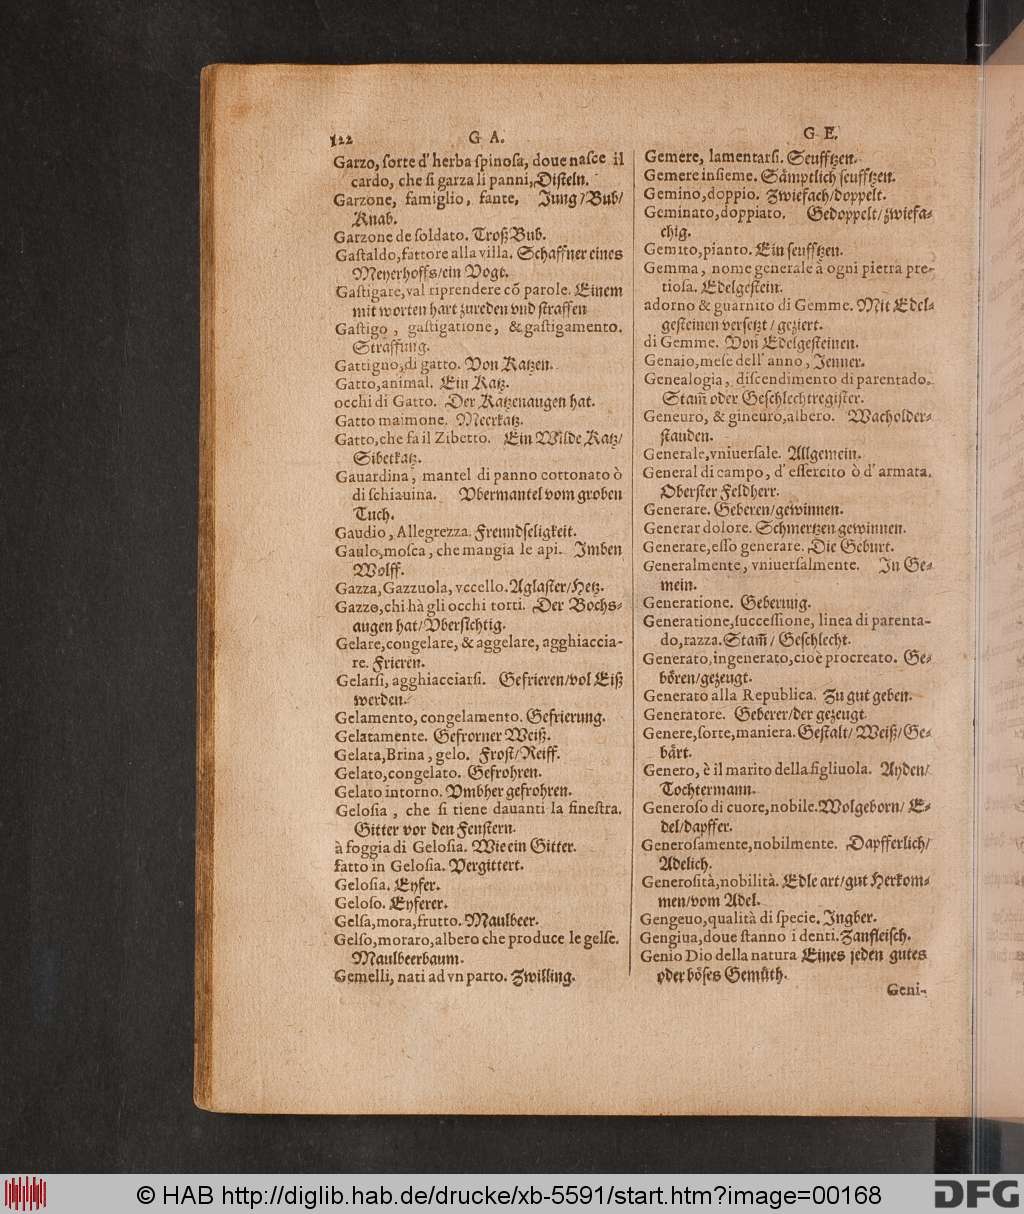 122 G A.
Garzo, ſorte d' herba ſpinoſa, doue naſce il
cardo, che ſi garza li panni, Diſteln.
Garzone, famiglio, fante, Jung/Bub/
Knab.
Garzone de ſoldato. Troß Bub.
Gaſtaldo, fattore alla villa. Schaffner eines
Meyerhoffs/ein Vogt.
Gaſtigare, val riprendere cõ parole. Einem
mit worten hart zureden vnd ſtraffen
Gaſtigo, gaſtigatione, & gaſtigamento.
Straffung.
Gattigno, di gatto. Von Katzen.
Gatto, animal. Ein Katz.
occhi di Gatto. Der Katzenaugen hat.
Gatto maimone. Meerkatz.
Gatto, che fa il Zibetto. Ein Wilde Katz/
Sibetkatz.
Gauardina, mantel di panno cottonato ò
di ſchiauina. Vbermantel vom groben
Tuch.
Gaudio, Allegrezza. Freundſeligkeit.
Gaulo, moſca, che mangia le api. Imben
Wolff.
Gazza, Gazzuola, vccello. Aglaſter/Hetz.
Gazzo, chi hà gli occhi torti. Der Bochs-
augen hat/Vberſichtig.
Gelare, congelare, & aggelare, agghiaccia-
re. Frieren.
Gelarſi, agghiacciarſi. Gefrieren/vol Eiß
werden.
Gelamento, congelamento. Gefrierung.
Gelatamente. Gefrorner Weiß.
Gelata, Brina, gelo. Froſt/Reiff.
Gelato, congelato. Gefrohren.
Gelato intorno. Vmbher gefrohren.
Geloſia, che ſi tiene dauanti la fineſtra.
Gitter vor den Fenſtern.
à foggia di Geloſia. Wie ein Gitter.
fatto in Geloſia. Vergittert.
Geloſia. Eyfer.
Geloſo. Eyferer.
Gelſa, mora, frutto. Maulbeer.
Gelſo, moraro, albero che produce le gelſe.
Maulbeerbaum.
Gemelli, nati ad vn parto. Zwilling.
G E.
Gemere, lamentarſi. Seufftzen.
Gemere inſieme. Sämptlich ſeufftzen.
Gemino, doppio. Zwiefach/doppelt.
Geminato, doppiato. Gedoppelt/zwiefa-
chig.
Gemito, pianto. Ein ſeufftzen.
Gemma, nome generale à ogni pietra pre-
tioſa. Edelgeſtein.
adorno & guarnito di Gemme. Mit Edel-
geſteinen verſetzt/geziert.
di Gemme. Von Edelgeſteinen.
Genaio, meſe dell' anno, Jenner.
Genealogia, diſcendimento di parentado.
Stam̃ oder Geſchlechtregiſter.
Geneuro, & gineuro, albero. Wacholder-
ſtauden.
Generale, vniuerſale. Allgemein.
General di campo, d' eſſercito ò d' armata.
Oberſter Feldherr.
Generare. Geberen/gewinnen.
Generar dolore. Schmertzen gewinnen.
Generare, eſſo generare. Die Geburt.
Generalmente, vniuerſalmente. In Ge-
mein.
Generatione. Geberung.
Generatione, ſucceſſione, linea di parenta-
do, razza. Stam̃/Geſchlecht.
Generato, ingenerato, cioè procreato. Ge-
bören/gezeugt.
Generato alla Republica. Zu gut geben.
Generatore. Geberer/der gezeugt.
Genere, ſorte, maniera. Geſtalt/Weiß/Ge-
bärt.
Genero, è il marito della figliuola. Ayden/
Tochtermann.
Generoſo di cuore, nobile. Wolgeborn/E-
del/dapffer.
Generoſamente, nobilmente. Dapfferlich/
Adelich.
Generoſità, nobilità. Edle art/gut Herkom-
men/vom Adel.
Gengeuo, qualità di ſpecie. Ingber.
Gengiua, doue ſtanno i denti. Zanfleiſch.
Genio Dio della natura Eines jeden gutes
oder böſes Gemüth.
Geni-
© HAB http://diglib.hab.de/drucke/xb-5591/start.htm?image=00168
DFG